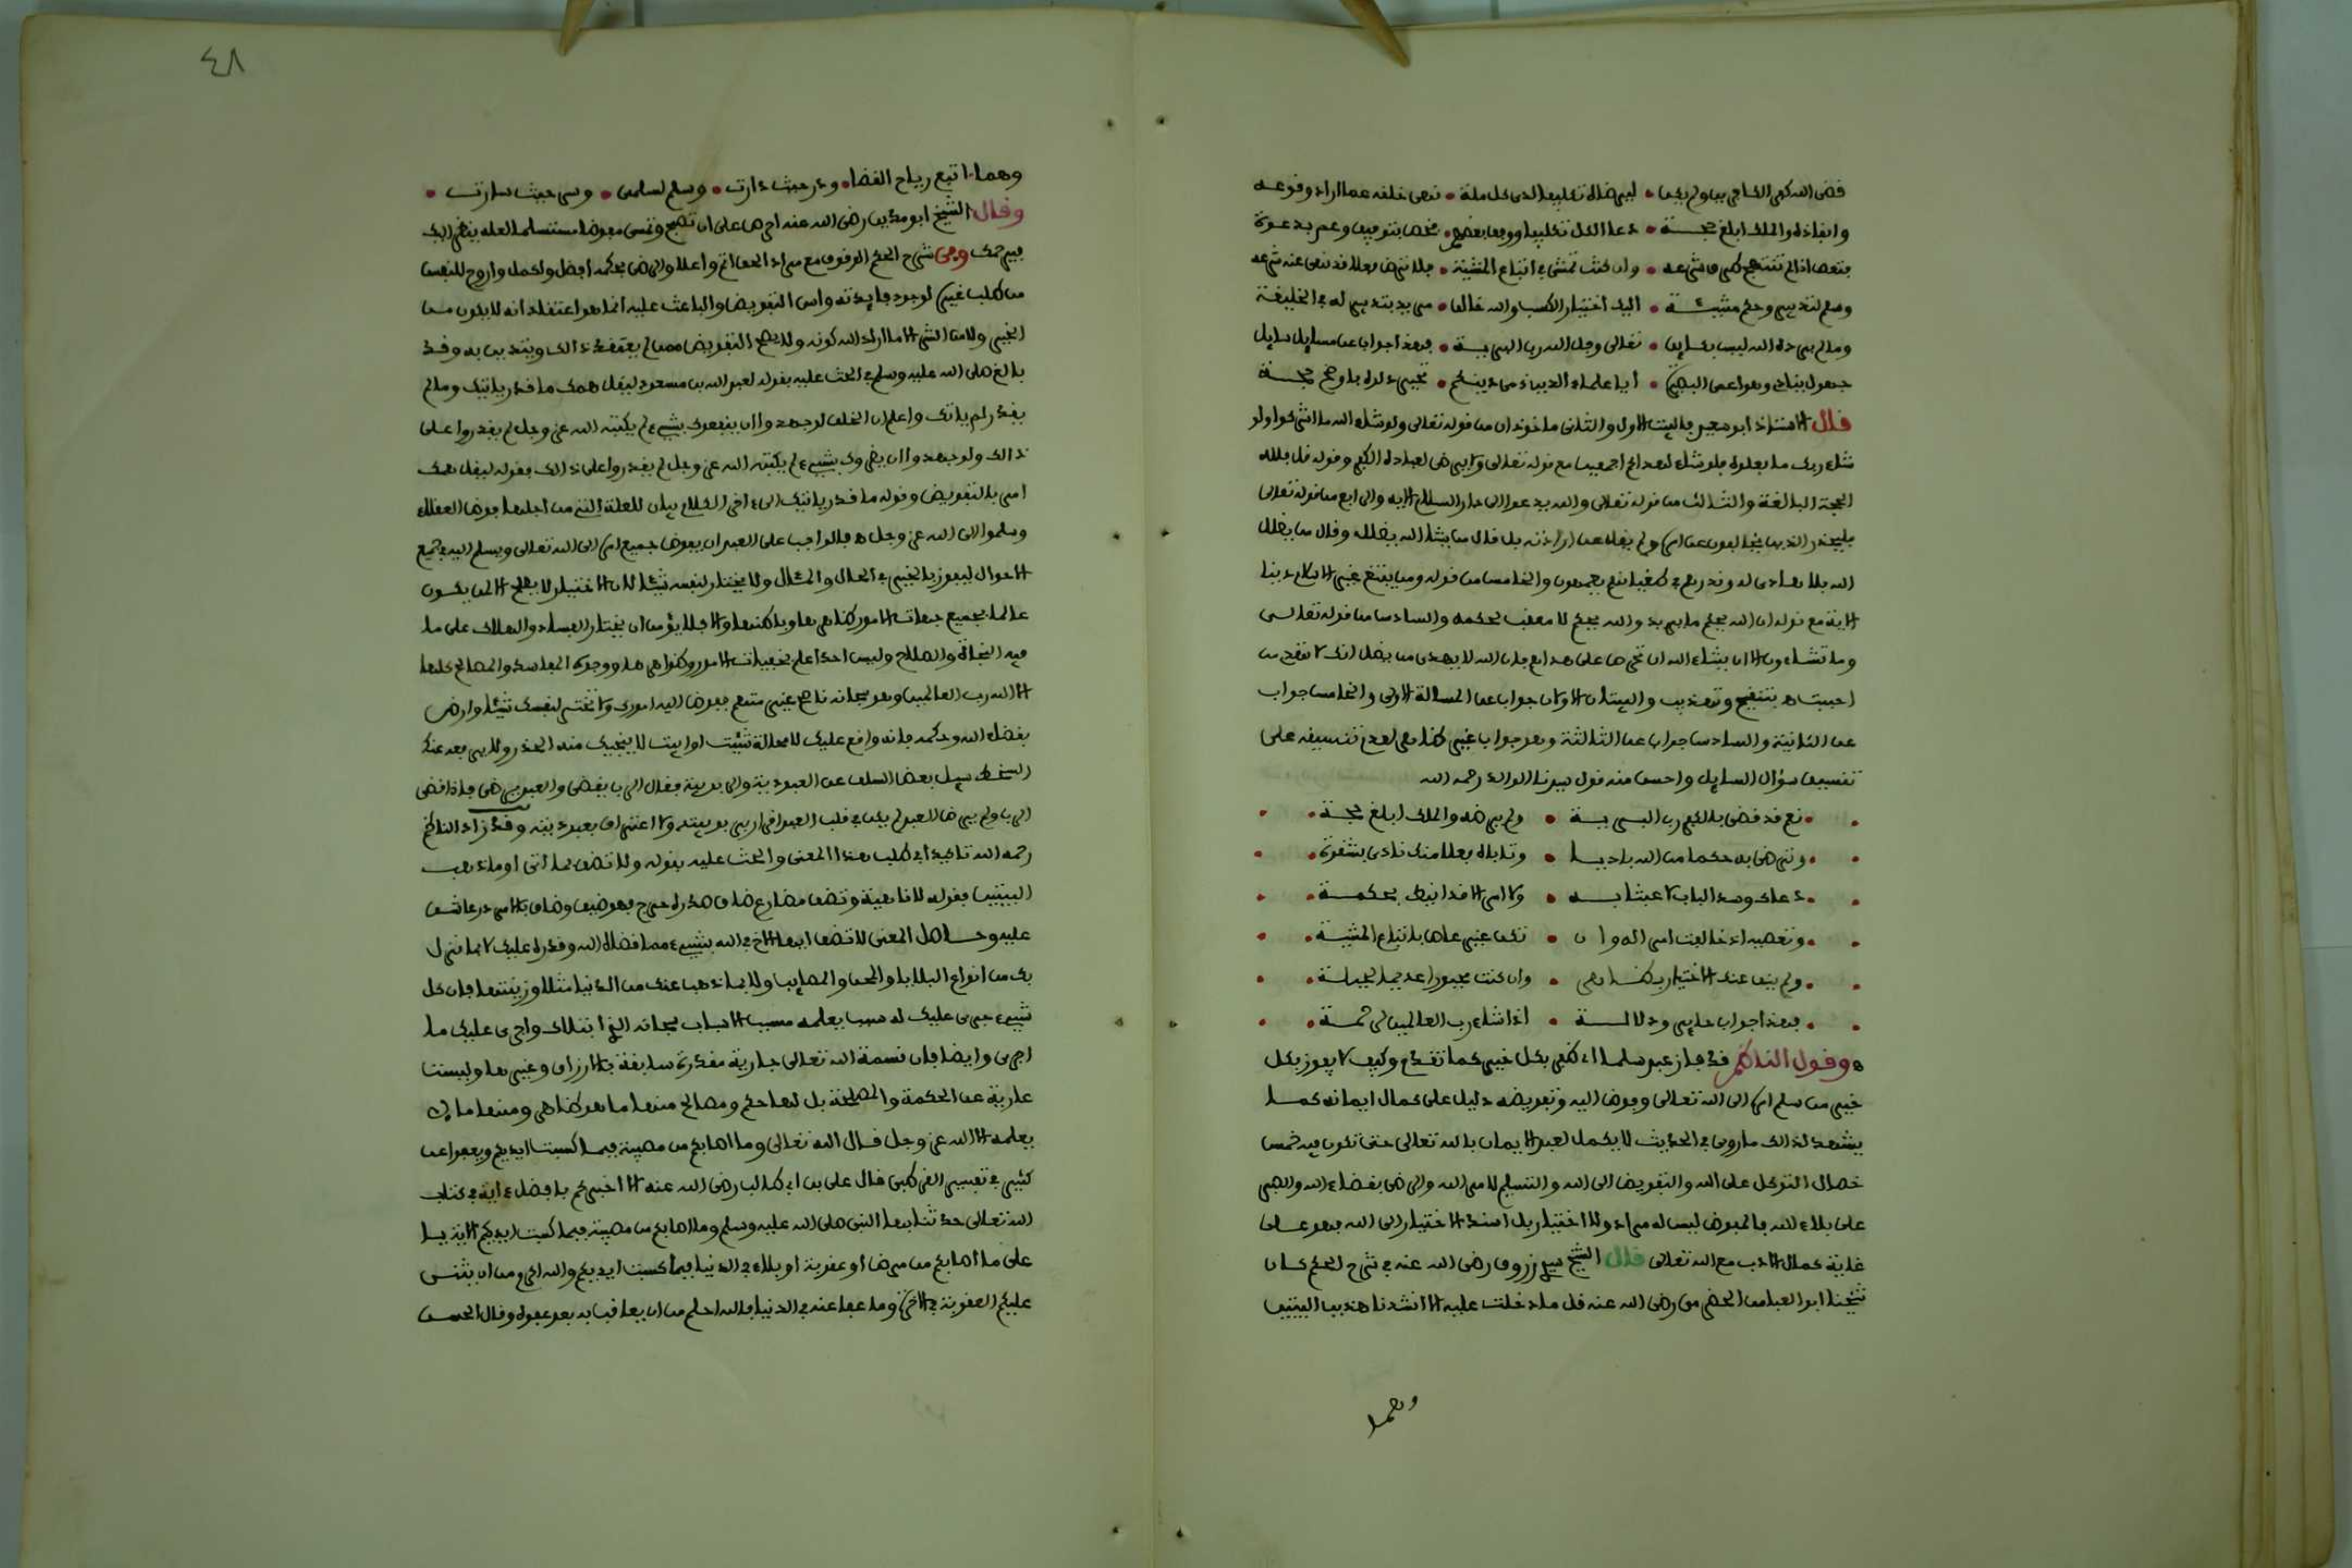 قضى الله كفر الكافرين ولم يكن • ليرضاه تكليفا لدى كل ملة • نهى خلقه عما اراد وقوعه
وانفاذه والملك ابلغ حجة • دعا الكل تكليفا ووفق بعضهم • فخص بتوفيق وعم بدعوة
فتعصى اذا لم تنتهج طرق شرعه • وان كنت تمشي في اتباع المشيئة • فلا ترض فعلا قد نهى عنه شرعه
وسلم لتدبير وحكم مشيئة • اليك اختيار الكسب والله خالق • مريد بتدبير له في الخليقة
وما لم يرده الله ليس بكاين • تعالى وجل الله رب البرية • فهذا جواب عن مسايل سايل
جهول ينادي وهو اعمى البصيرة • أيا علماء الدين ذمي دينكم • تحير دلوه باوضح حجة
قال الاستاذ ابو سعيد فالبيت الاول والثاني ماخوذان من قوله تعالى ولو شاء الله ما اشركوا ولو
شاء ربك ما فعلوه فلو شاء لهداكم اجمعين مع قوله تعالى ولا يرضى لعباده الكفر وقوله قل فلله
الحجة البالغة والثالث من قوله تعالى والله يدعو الى دار السلام الاية والرابع من قوله تعالى
فليحذر الذين يخالفون عن امره ولم يقل عن ارادته بل قال من يشا الله يضلله وقال من يضلل
الله فلا هادي له ونذرهم في طغيانهم يعمهون والخامس من قوله ومن يبتغ غير الاسلام دينا
الاية مع قوله ان الله يحكم ما يريد والله يحكم لا معقب لحكمه والسادس من قوله تعالى
وما تشاءون الا ان يشاء الله ان تحرص على هداهم فان الله لا يهدي من يضل انك لا تهدي من
احببت اه بتنقيح وتهذيب والبيتان الاولان جواب عن المسالة الاولى والخامس جواب
عن الثانية والسادس جواب عن الثالثة وهو جواب غير ظاهر لعدم تنسيقه على
تنسيق سؤال السايل واحسن منه قول سيدنا الوالد رحمه الله
• نعم قد قضى بالكفر رب البرية • ولم يرضه والملك ابلغ حجة •
• وترضى به حكما من الله باديا • وتاباه فعلا منك نادى بشقوة •
• دعاك وسد الباب لا عبثا به • ولا امر الا قد انيط بحكمة •
• وتعصيه اذ خالفت امر اله وان • تكن غير عاص باتباع المشيئة •
• ولم ينف عنك الاختيار بظاهر • وان كنت مجبورا عديما لحيلة •
• فهذا جواب حاير ودلالة • اذا شاء رب العالمين لرحمة •
ه وقول الناظم قد فاز عبد سلما اي ظفر بكل خير كما تقدم وكيف لا يفوز بكل
خير من سلم امره الى الله تعالى وفوض اليه وتفويضه دليل على كمال ايمانه كما
يشهد لذالك ما روي في الحديث لا يكمل لعبد الايمان بالله تعالى حتى تكون فيه خمس
خصال التوكل على الله والتفويض الى الله والتسليم لامر الله والرضى بقضاء الله والصبر
على بلاء الله فالمفوض ليس له مراد ولا اختيار بل اسند الاختيار الى الله فهو على
غاية كمال الادب مع الله تعالى قال الشيخ سيدي زروق رضي الله عنه في شرح الحكم كان
شيخنا ابو العباس الحضرمي رضي الله عنه قل ما دخلت عليه الا انشدنا هذين البيتين
وهما
٤٨
وهما اتبع رياح القضا • ودر حيث دارت • وسلم لسلمى • وسر حيث سارت •
وقال الشيخ ابو مدين رضي الله عنه احرص على ان تصبح وتمسي مفوضا مستسلما لعله ينظر اليك
فيرحمك وفي شرح الحكم الوقوف مع مراد الحق اتم واعلا والرضى بحكمه افضل واكمل واروح للنفس
من طلب غيره لوجود فايدته واس التفويض والباعث عليه انما هو اعتقاد انه لا يكون من
الخير ولا من الشر الا ما اراد الله كونه ولا يصح التفويض ممن لم يعتقد ذالك ويتدين به وقد
بالغ صلى الله عليه وسلم في الحث عليه بقوله لعبد الله بن مسعود ليقل همك ما قدر ياتيك وما لم
يقدر لم ياتك واعلم ان الخلق لو جهدوا ان ينفعوك بشيء لم يكتبه الله عز وجل لم يقدروا على
ذالك ولو جهدوا ان يضروك بشيء لم يكتبه الله عز وجل لم يقدروا على ذالك فقوله ليقل همك
امر بالتفويض وقوله ما قدر ياتيك الى اخر الكلام بيان للعلة التي من اجلها فوض العقلاء
وسلموا الى الله عز وجل ه فالواجب على العبد ان يفوض جميع امره الى الله تعالى ويسلم اليه في جميع
الاحوال ليفوز بالخير في الحال والمئال ولا يختار لنفسه شيئا لان الاختيار لا يصلح الا لمن يكون
عالما بجميع جهات الامور ظاهرها وباطنها والا فلا يؤمن ان يختار الفساد والهلاك على ما
فيه النجاة والصلاح وليس احدا علم بخفيات الامور وظواهرها ووجوه المفاسد والمصالح كلها
الا الله رب العالمين وهو سبحانه ناصح غير متهم ففوض اليه امورك ولا تختر لنفسك شيئا وارض
بقضاء الله وحكمه فانه واقع عليك لا محالة شئت او ابيت لا ينجيك منه الحذر ولا يرفعه عنك
السخط سيل بعض السلف عن العبودية والربوبية فقال الرب يقضي والعبد يرضى فاذا قضى
الرب ولم يرض العبد لم يكن في قلب العبد اقرار بربوبيته ولا اعتراف بعبوديته وقد زاد الناظم
رحمه الله تاكيدا في طلب هذا المعنى والحث عليه بقوله ولا تضق بما اتى او ما ذهب
البيتين فقوله لا ناهية وتضق مضارع ضاق صدره حرج فهو ضيق وضاق بالامر شق
عليه وحاصل المعنى لا تضق ايها الاخ في الله بشيء مما قضاه الله وقدره عليك لا بما نزل
بك من انواع البلايا والمحن والمصايب ولا بما ذهب عنك من الدنيا مثلا وزينتها فان كل
شيء جرى عليك له سبب يعلمه مسبب الاسباب سبحانه الذي ابتلاك واجرى عليك ما
اجرى وايضا فان قسمة الله تعالى جارية مقدرة سابقة بالارزاق وغيرها وليست
عارية عن الحكمة والمصلحة بل لها حكم ومصالح منها ما هو ظاهر ومنها ما لا
يعلمه الا الله عز وجل قال الله تعالى وما اصابكم من مصيبة فبما كسبت ايديكم ويعفوا عن
كثير في تفسير القرطبي قال علي بن ابي طالب رضي الله عنه الا اخبركم بافضل ءاية في كتاب
الله تعالى حدثنا بها النبي صلى الله عليه وسلم وما اصابكم من مصيبة فبما كسبت ايديكم الاية يا
علي ما اصابكم من مرض او عقوبة او بلاء في الدنيا فبما كسبت ايديكم والله اكرم من ان يثني
عليكم العقوبة في الاخرة وما عفا عنه في الدنيا فالله احلم من ان يعاقب به بعد عفوه وقال الحسن